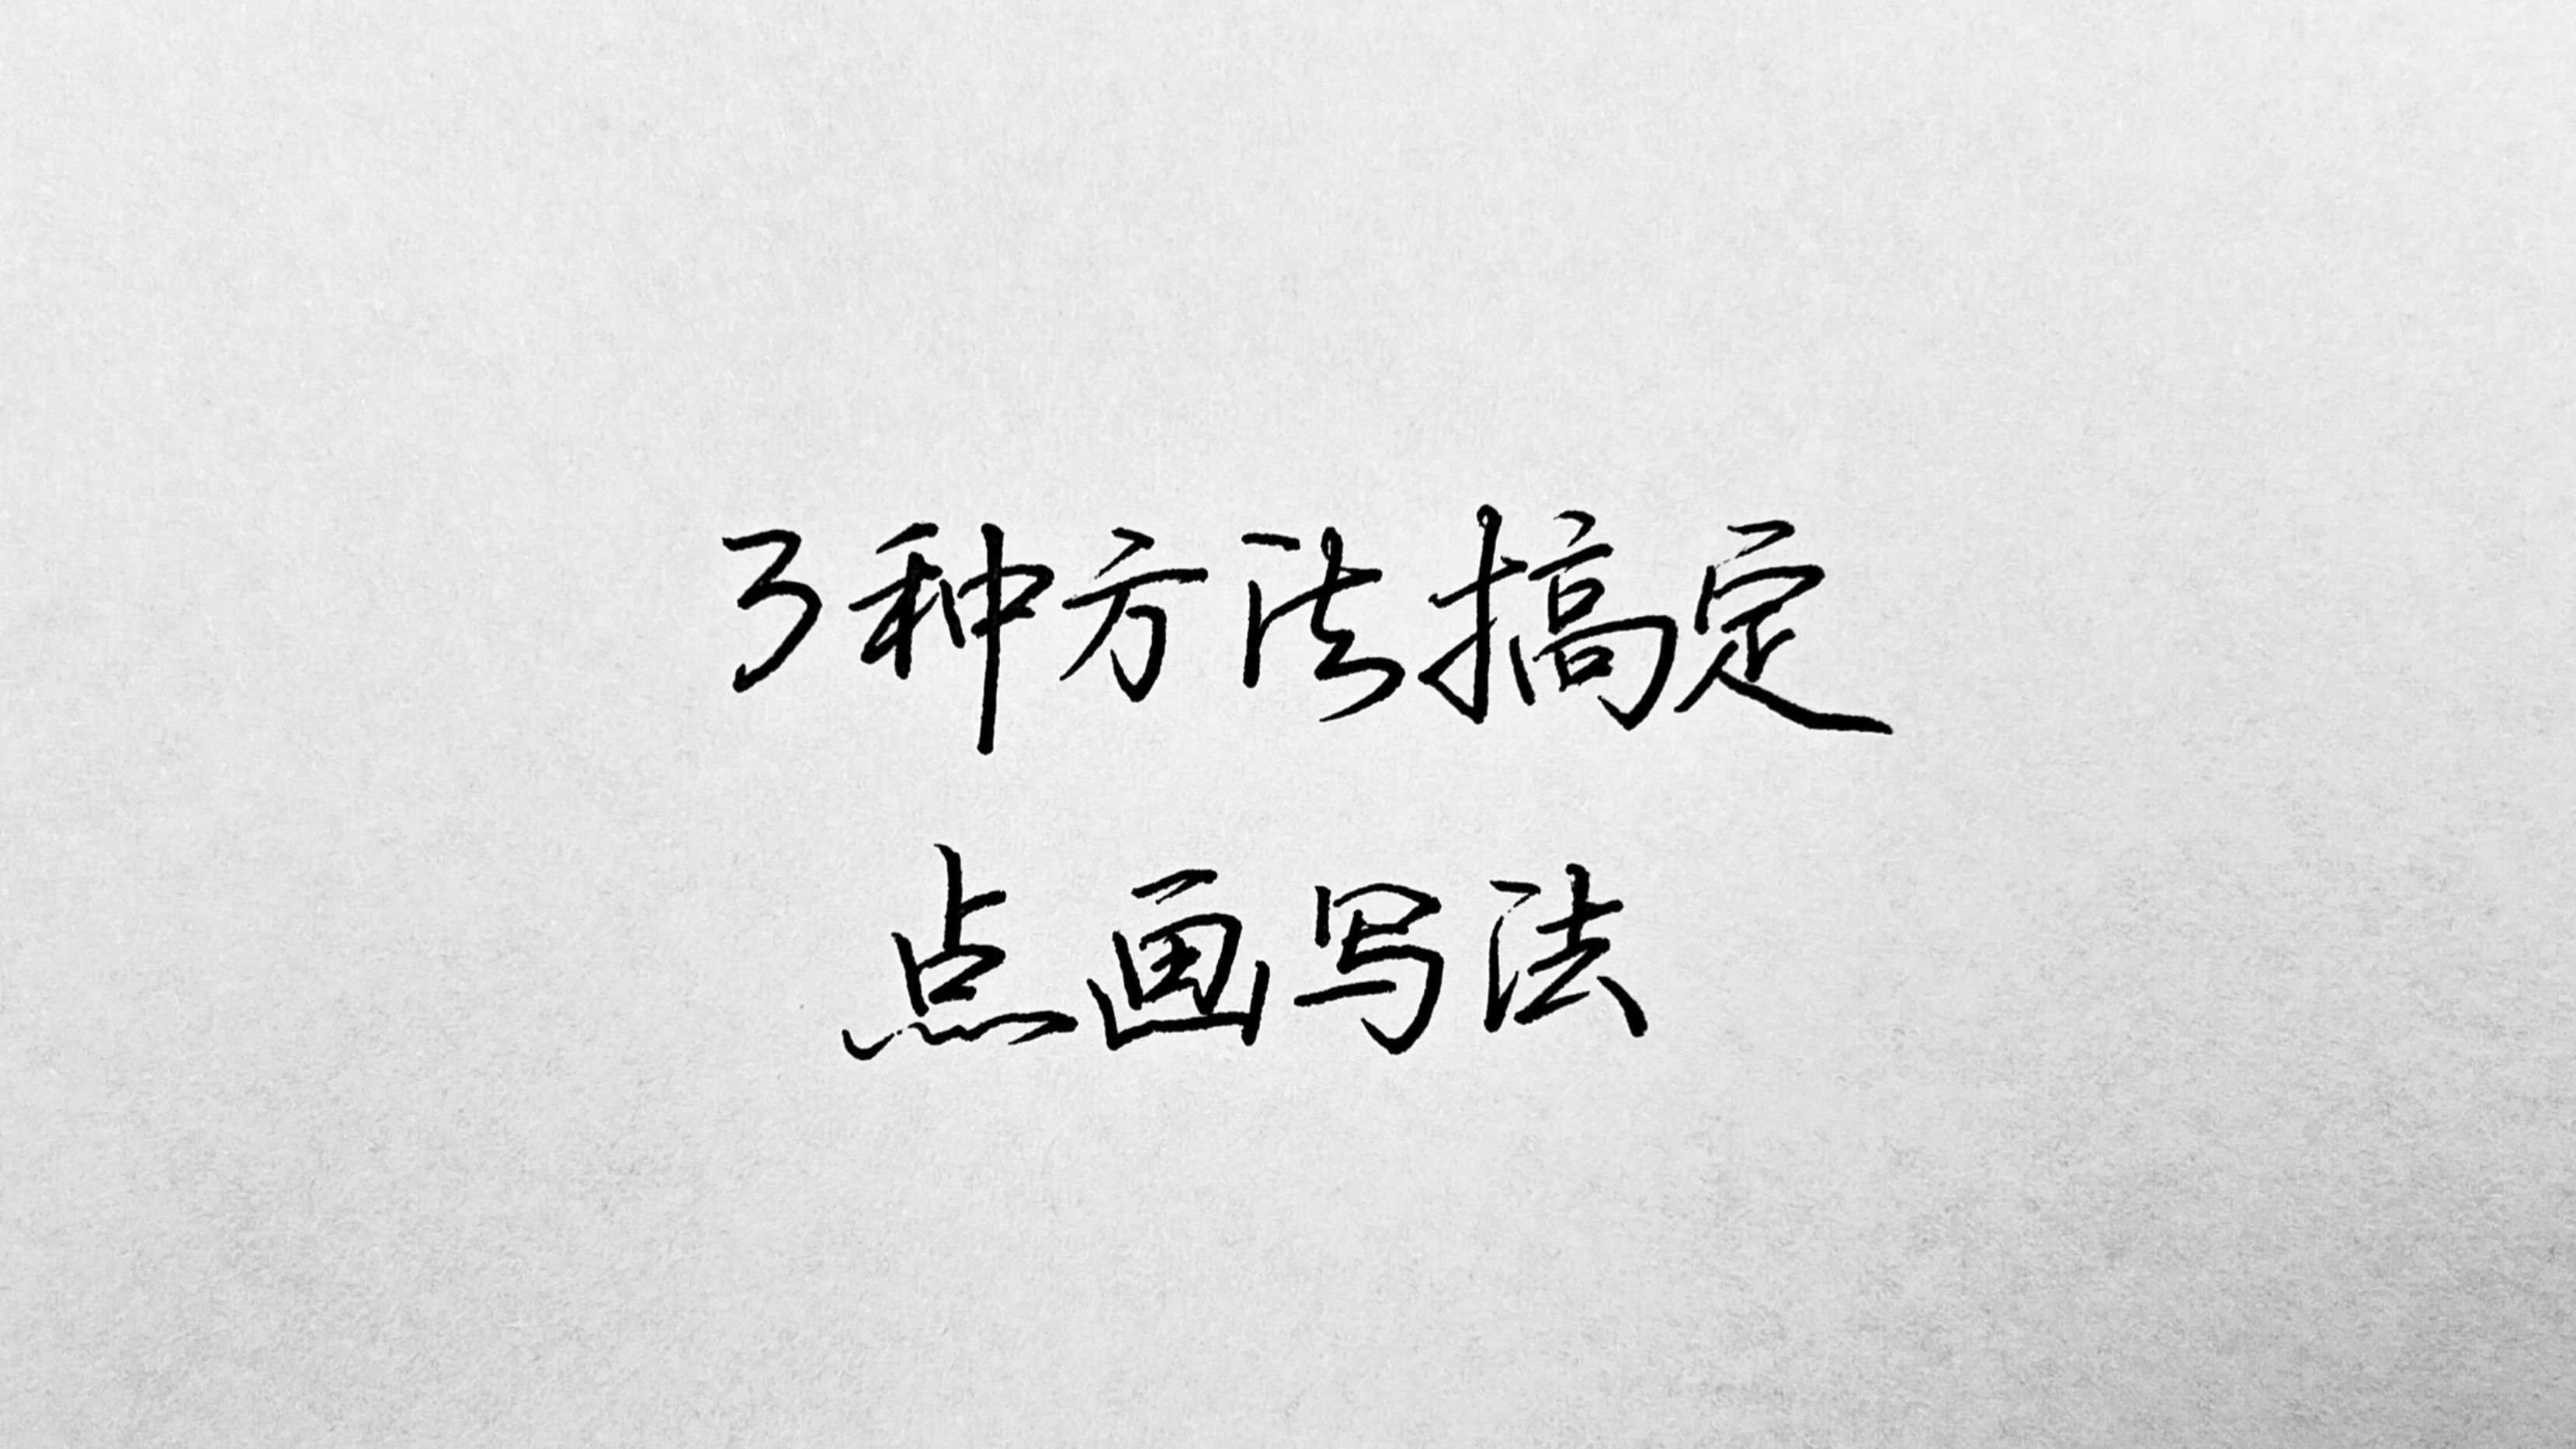 3种方法搞定
点画写法